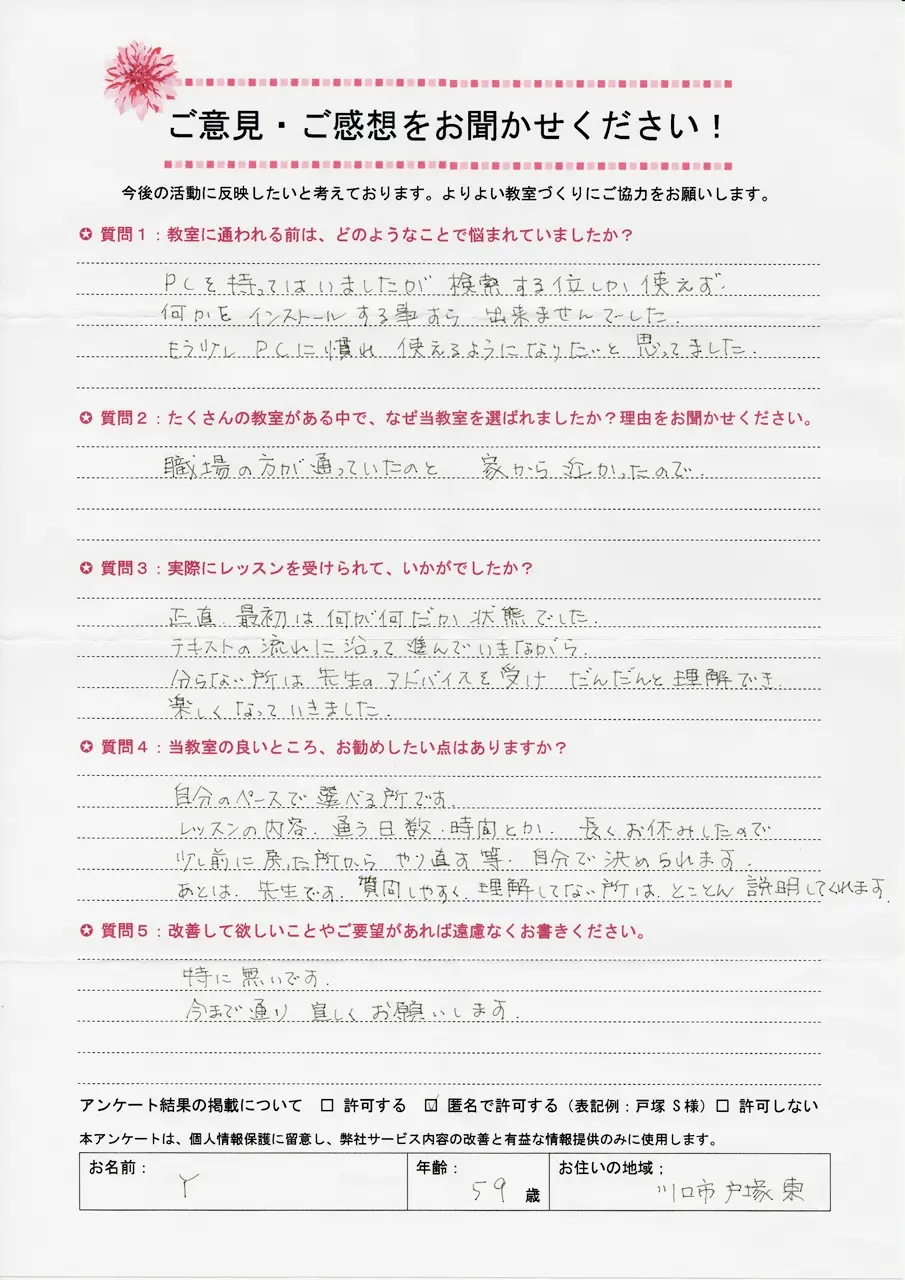 ご意見・ご感想をお聞かせください！
今後の活動に反映したいと考えております。よりよい教室づくりにご協力をお願いします。
✪ 質問１：教室に通われる前は、どのようなことで悩まれていましたか？
PCを持ってはいましたが 検索する位しか使えず、
何かをインストールする事すら 出来ませんでした。
もう少し PCに慣れ 使えるようになりたいと思ってました。
✪ 質問２：たくさんの教室がある中で、なぜ当教室を選ばれましたか？理由をお聞かせください。
職場の方が通っていたのと 家から近かったので。
✪ 質問３：実際にレッスンを受けられて、いかがでしたか？
正直、最初は何が何だか状態でした。
テキストの流れに沿って進んでいきながら、
分らない所は先生のアドバイスを受け だんだんと理解でき、
楽しくなっていきました。
✪ 質問４：当教室の良いところ、お勧めしたい点はありますか？
自分のペースで選べる所です。
レッスンの内容、通う日数・時間とか、長くお休みしたので
少し前に戻った所から やり直す等、自分で決められます。
あとは、先生です。質問しやすく、理解してない所は、とことん説明してくれます。
✪ 質問５：改善して欲しいことやご要望があれば遠慮なくお書きください。
特に無いです。
今まで通り 宜しくお願いします。
アンケート結果の掲載について □ 許可する ☑ 匿名で許可する（表記例：戸塚 S 様）□ 許可しない
本アンケートは、個人情報保護に留意し、弊社サービス内容の改善と有益な情報提供のみに使用します。
お名前： Y 年齢： 59 歳 お住いの地域； 川口市戸塚東